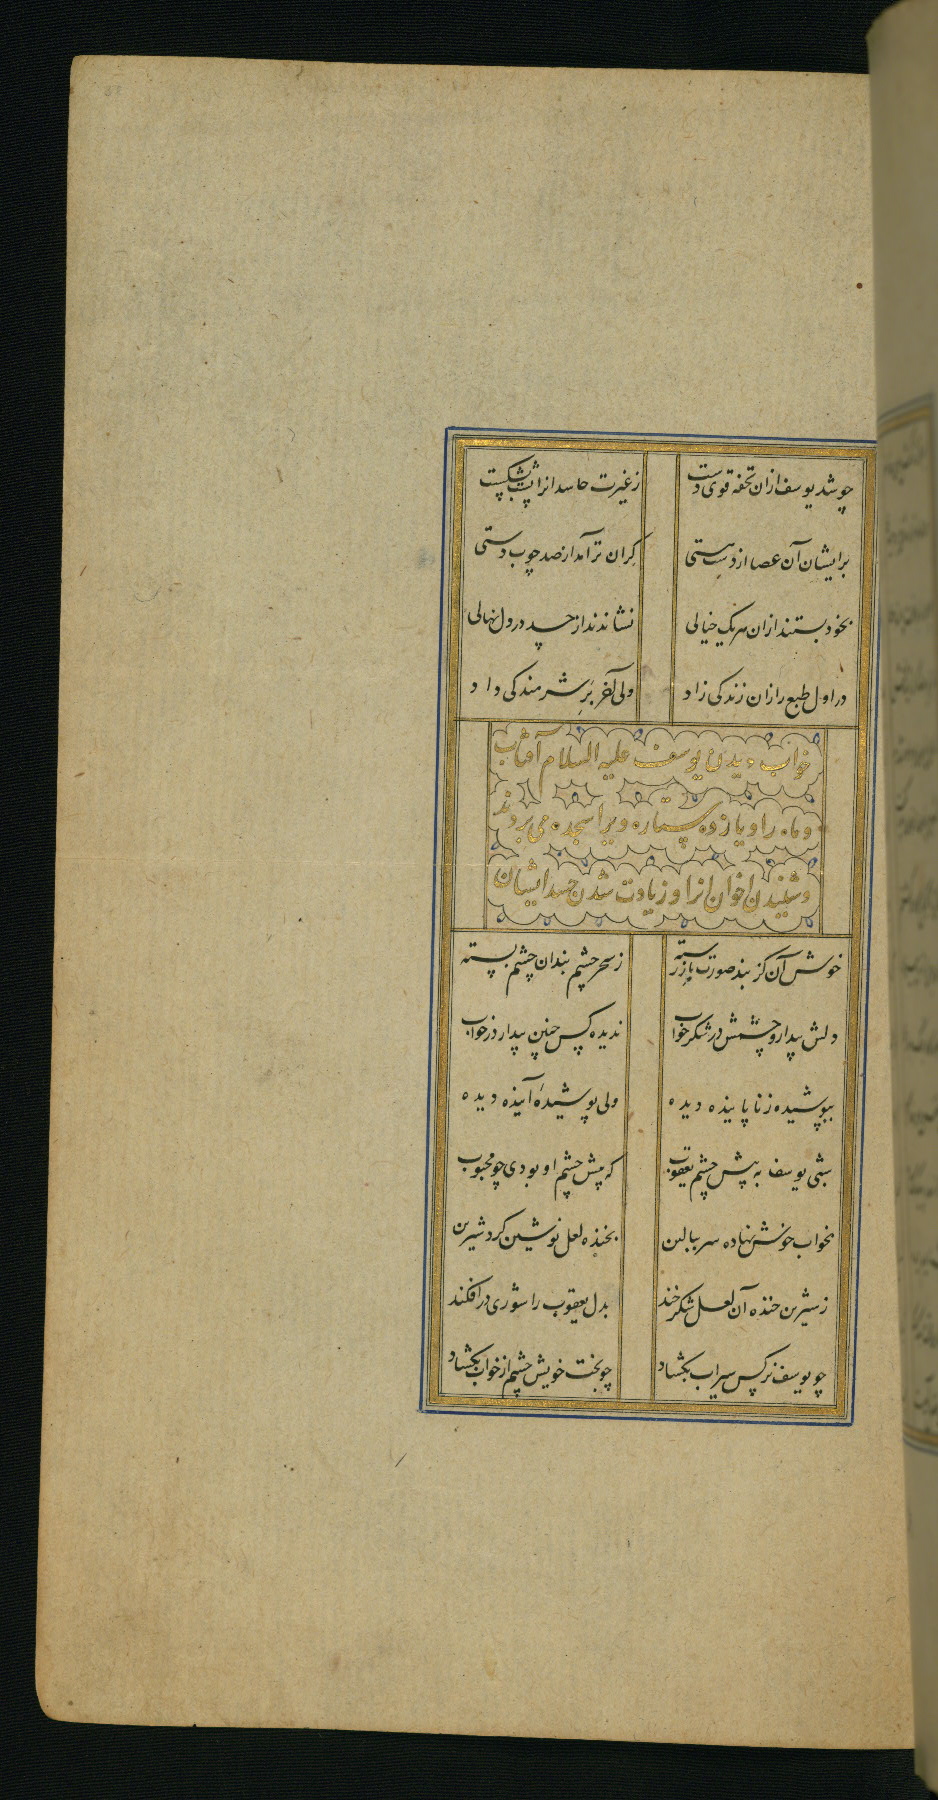 چو شد یوسف ازان تحفه قوی دست زغیرت حاسدانرا پشت بشکست
برایشان آن عصا از دست هستی گران تر آمد از صد چوب دستی
بخود بستند ازان هر یک خیالی نشاندند از حسد در دل نهالی
در اول طبع را زان زندگی زاد ولی آخر بر شرمندگی داد
خواب دیدن یوسف علیه السلام آفتاب
و ماه را و یازده ستاره ویرا سجده می بردند
و شنیدن اخوان انرا و زیادت شدن حسد ایشان
خوش آن کز بند صورت باز رسته ز سحر چشم بندان چشم بسته
دلش بیدار و چشمش در شکر خواب ندیده کس چنین بیدار در خواب
بپوشیده ز ناپاینده دیده ولی پوشیدهٔ آینده دیده
شبی یوسف به پیش چشم یعقوب که پیش چشم او بودی چو محبوب
بخواب خوش نهاده سر ببالین بخنده لعل نوشین کرد شیرین
ز شیرین خنده آن لعل شکرخند بدل یعقوب را شوری در افکند
چو یوسف نرگس سیراب بگشاد چو بخت خویش چشم از خواب بگشاد